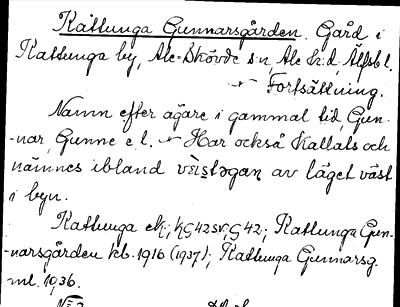 Kattunga Gunnarsgården. Gård i
Kattunga by, Ale-Skövde s:n, Ale h:d, Älfsb l.
Fortsättning.
Namn efter ägare i gammal tid, Gun-
-nar, Gunne e. l. Har också kallats och
nämnes ibland vèstəgaṇ av läget väst
i byn.
Kattunga ek; hG42SV; G42; Kattunga Gun-
-narsgården kb. 1916 (1937); Kattunga Gunnarsg.
ml. 1936.